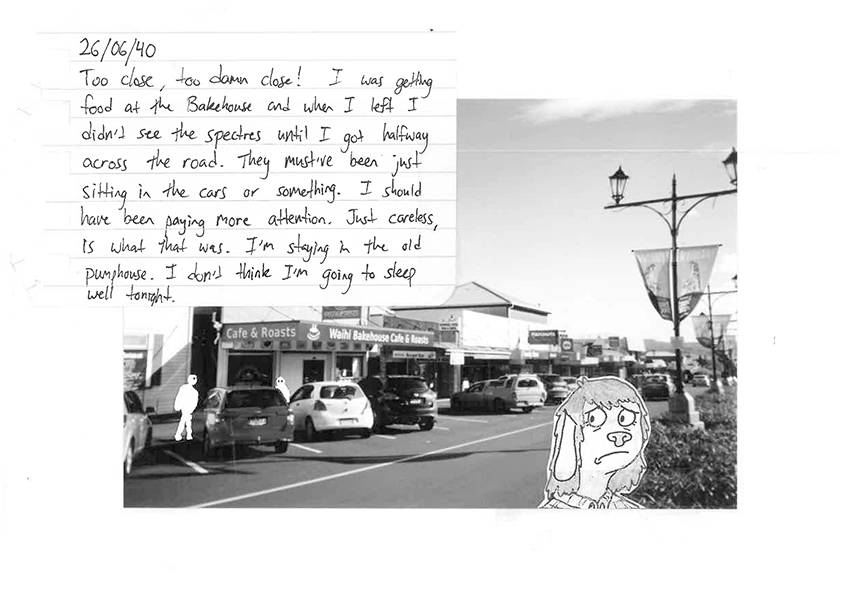 26/06/40
Too close, too damn close! I was getting
food at the Bakehouse and when I left I
didn't see the spectres until I got halfway
across the road. They must've been just
sitting in the cars or something. I should
have been paying more attention. Just careless,
is what that was. I'm staying in the old
pumphouse. I don't think I'm going to sleep
well tonight.
Cafe & Roasts
Waihi Bakehouse Cafe & Roasts